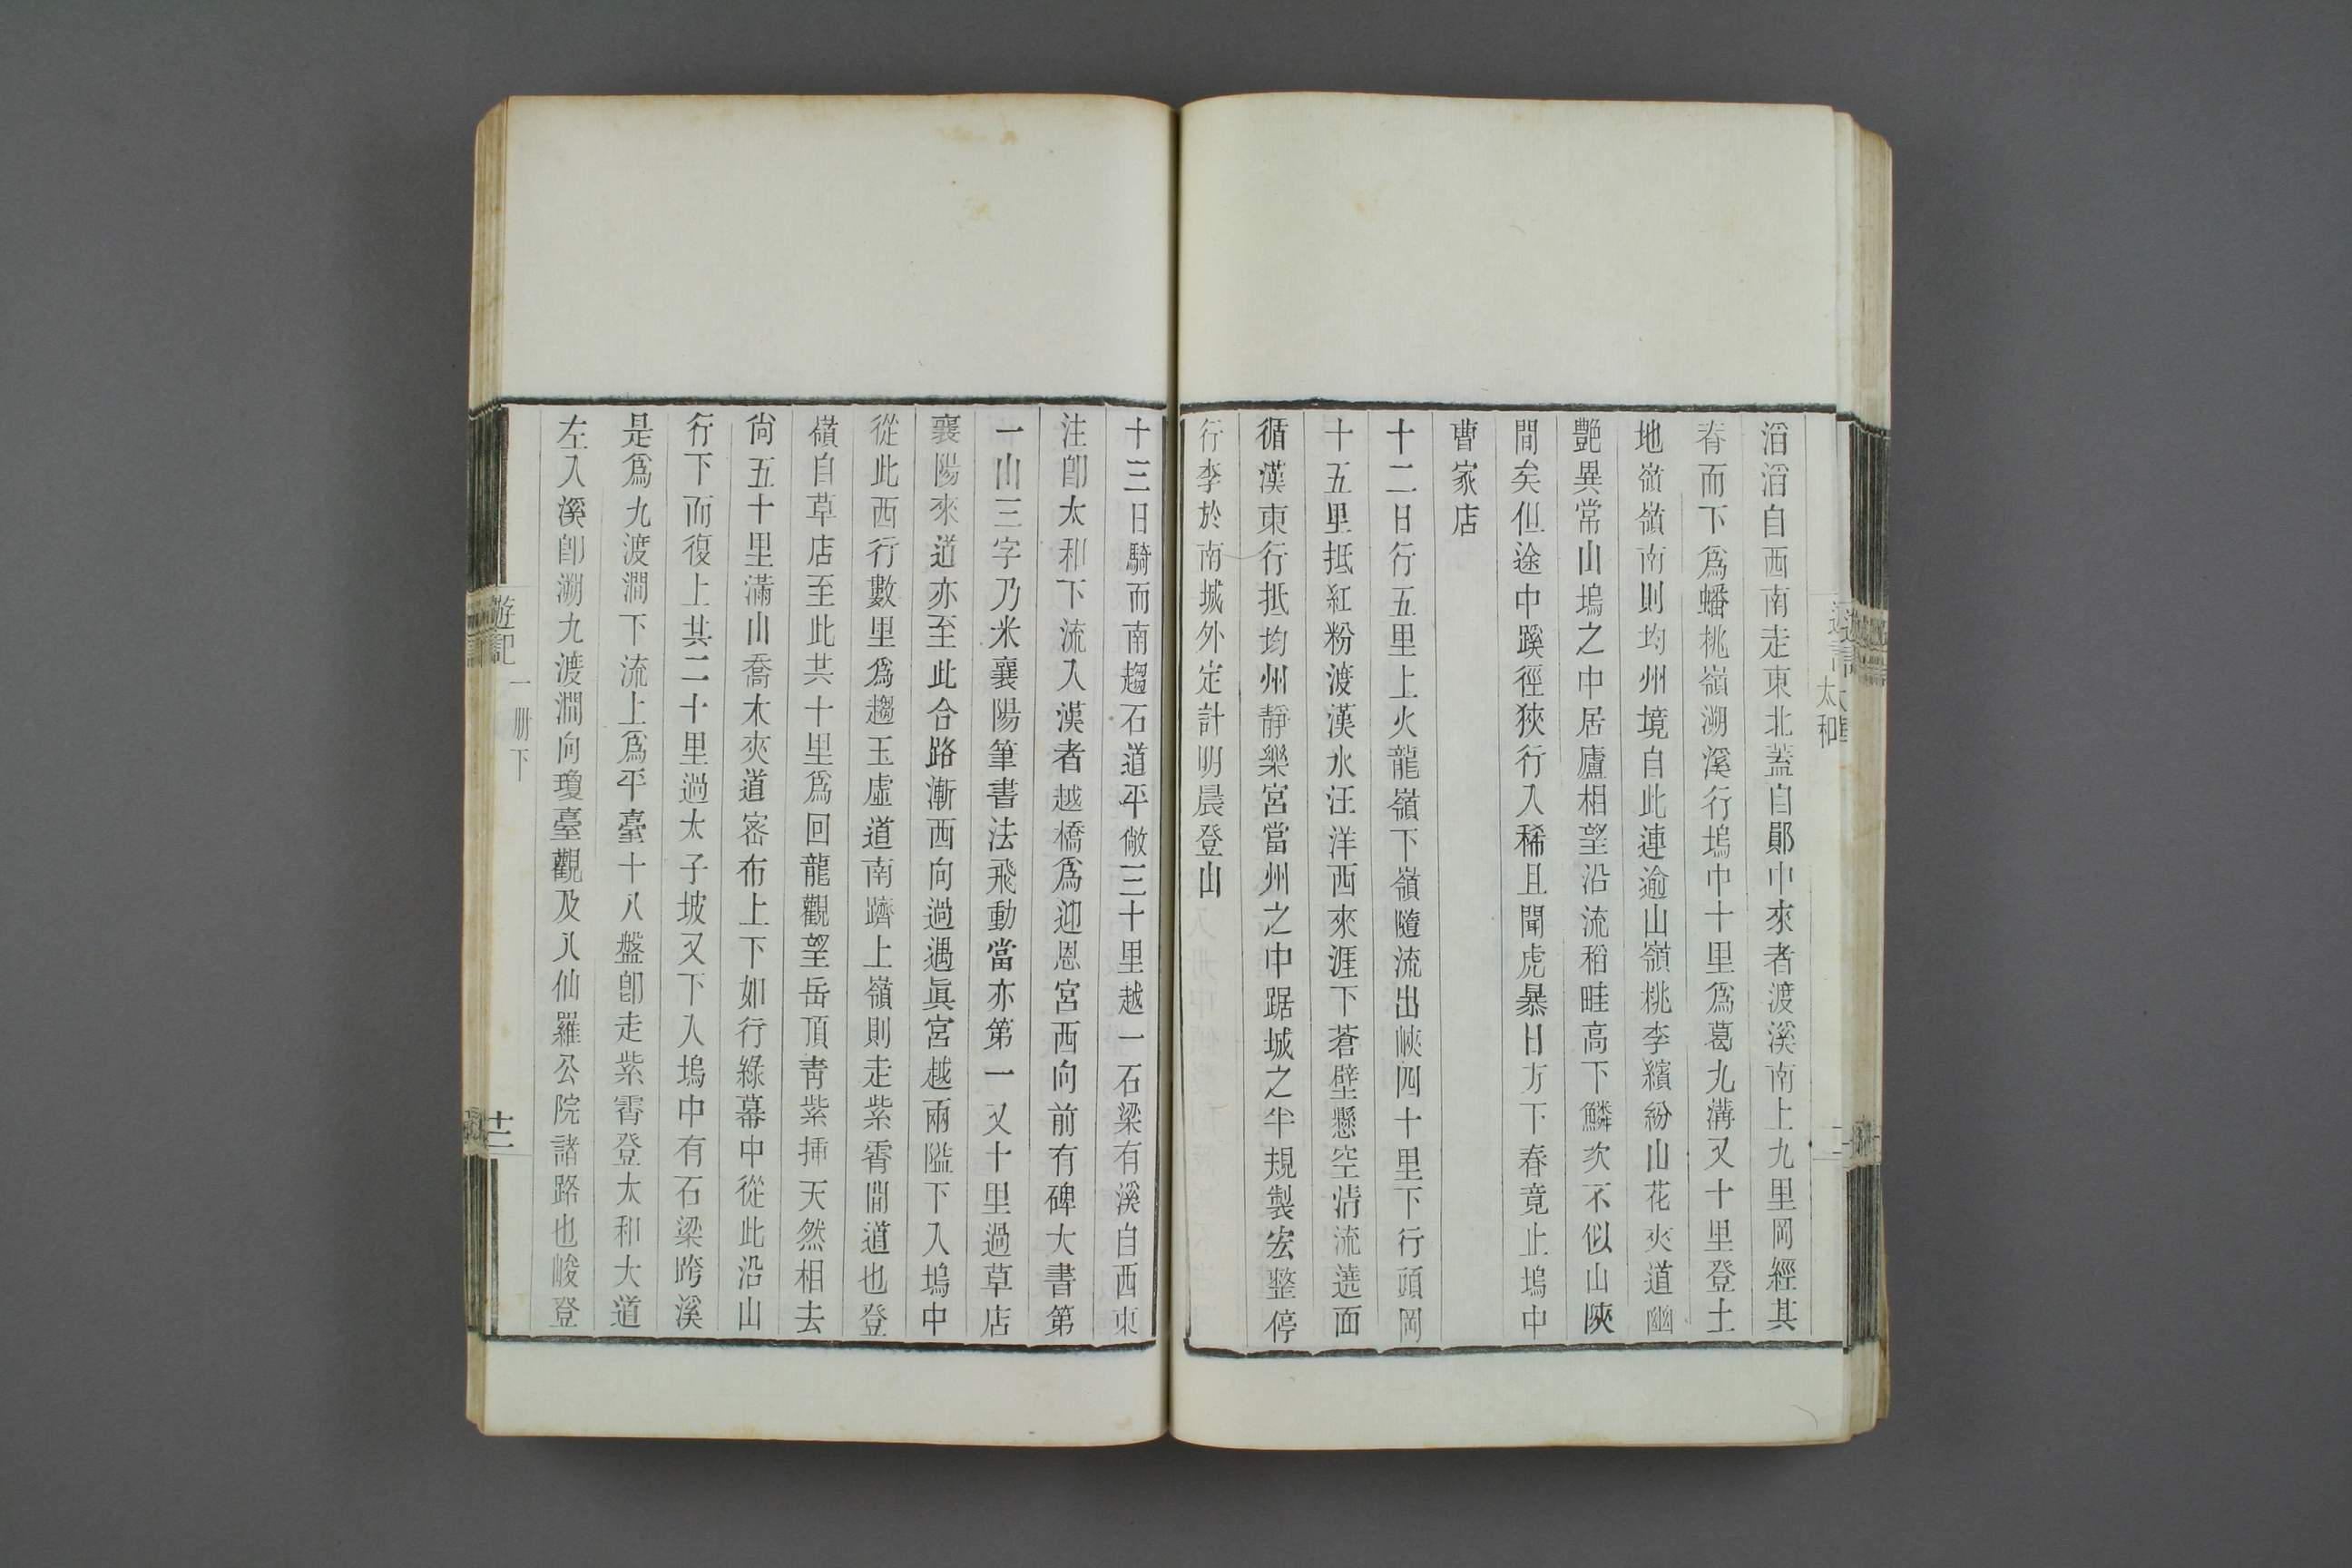 滔滔自西南走東北蓋自鄖中來者渡溪南上九里岡經其
脊而下爲蟠桃嶺溯溪行塢中十里爲葛九溝又十里登土
地嶺嶺南則均州境自此連逾山嶺桃李繽紛山花夾道幽
艷異常山塢之中居廬相望沿流稻畦高下鱗次不似山陝
間矣但途中蹊徑狹行人稀且聞虎暴日方下舂竟止塢中
曹家店
十二日行五里上火龍嶺下嶺隨流出峽四十里下行頭岡
十五里抵紅粉渡漢水汪洋西來涯下蒼壁懸空清流遶面
循漢東行抵均州靜樂宮當州之中踞城之半規製宏整停
行李於南城外定計明晨登山
十三日騎而南趨石道平敞三十里越一石梁有溪自西東
注卽太和下流入漢者越橋爲迎恩宮西向前有碑大書第
一山三字乃米襄陽筆書法飛動當亦第一又十里過草店
襄陽來道亦至此合路漸西向過遇眞宮越兩隘下入塢中
從此西行數里爲趨玉虛道南躋上嶺則走紫霄間道也登
嶺自草店至此共十里爲回龍觀望岳頂靑紫插天然相去
尙五十里滿山喬木夾道密布上下如行綠幕中從此沿山
行下而復上共二十里過太子坡又下入塢中有石梁跨溪
是爲九渡澗下流上爲平臺十八盤卽走紫霄登太和大道
左入溪卽溯九渡澗向瓊臺觀及八仙羅公院諸路也峻登
遊記
一冊下
十二
太和